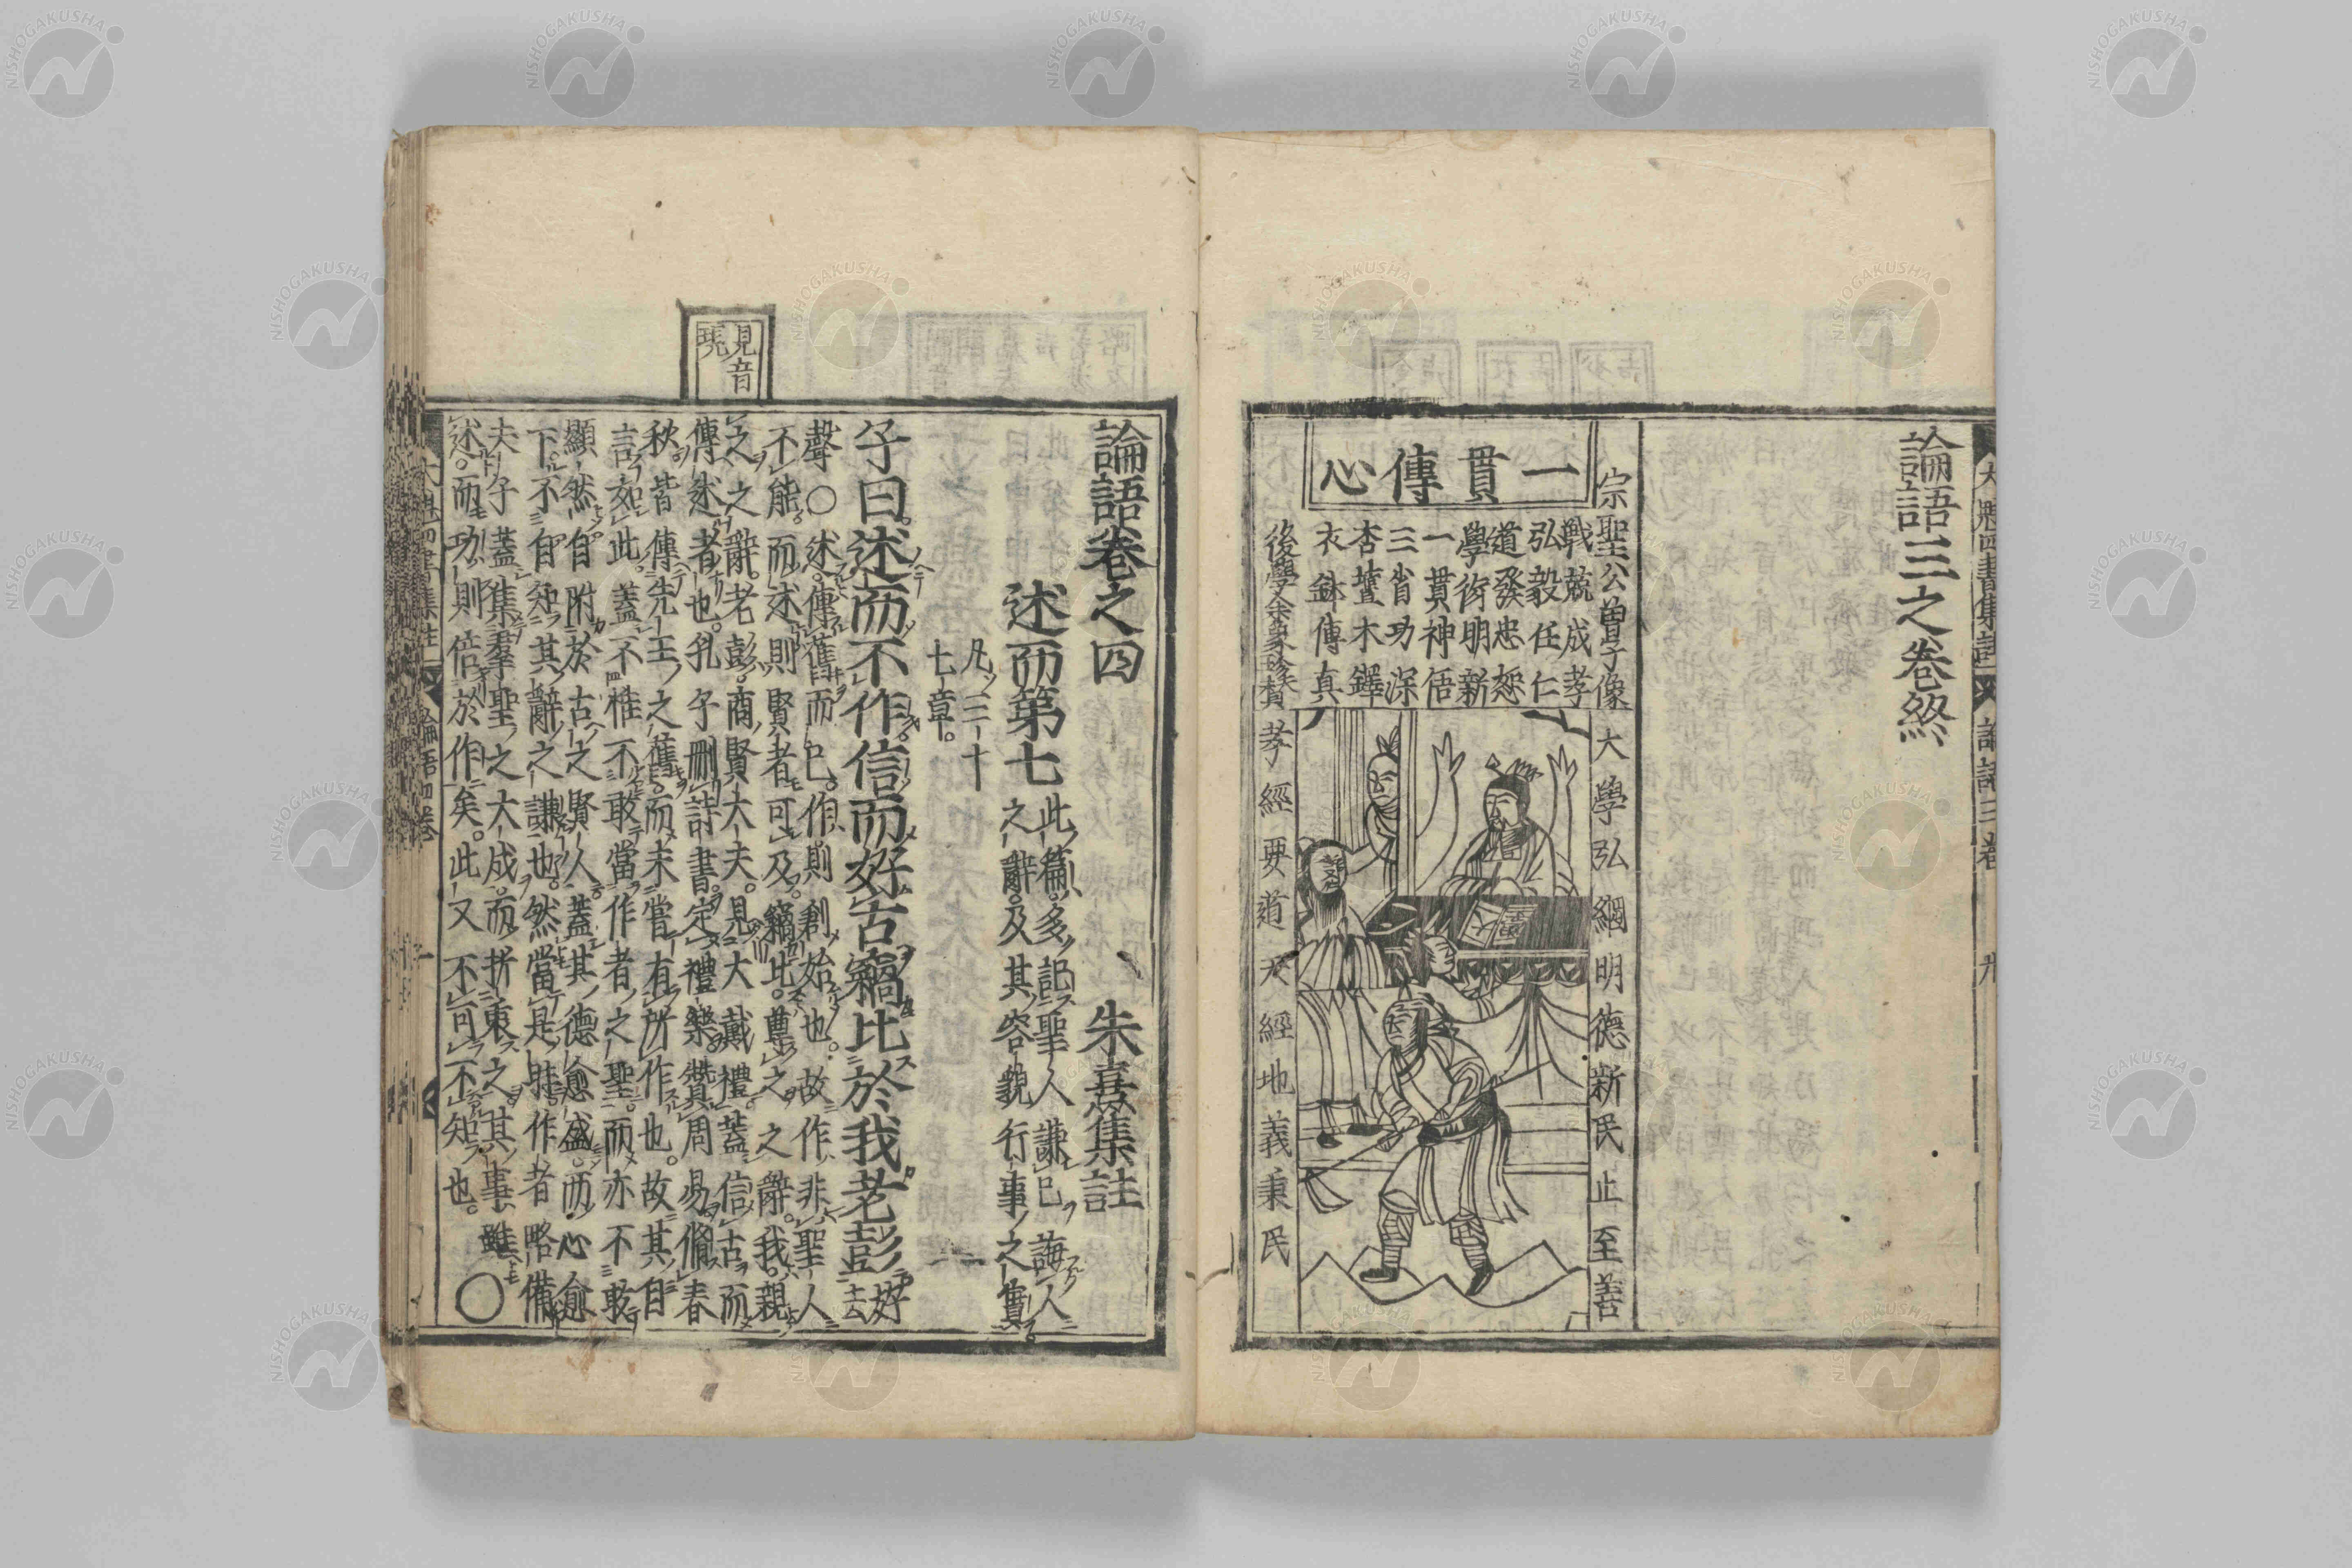 論語三之卷終
宗聖公曾子像
大學弘綱明德新民止至善
一貫傳心
戰兢成孝
弘毅任仁
道發忠恕
學衍明新
一貫神悟
三省功深
杏壇木鐸
衣鉢傳真
後學余象斗贊
孝經要道天經地義秉民
論語卷之四 朱熹集註
述而第七 此篇。多記聖人謙己誨人
之辭。及其容貌行事之實。
凡三十
七章。
見音
現
子曰。述而不作。信而好古。竊比於我老彭 好去
聲○述。傳舊而已。作則創始也。故作非聖人
不能。而述則賢者可及。竊比。尊之之辭。我。親
之之辭。老彭。商賢大夫。見大戴禮。蓋信古而
傳述者也。孔子刪詩書。定禮樂。贊周易。脩春
秋。皆傳先王之舊。而未嘗有所作也。故其自
言如此。蓋不惟不敢當作者之聖。而亦不敢
顯然自附於古之賢人。蓋其德愈盛。而心愈
下。不自知其辭之謙也。然當是時作者略備
夫子蓋集羣聖之大成。而折衷之。其事雖
述。而功則倍於作矣。此又不可不知也。○